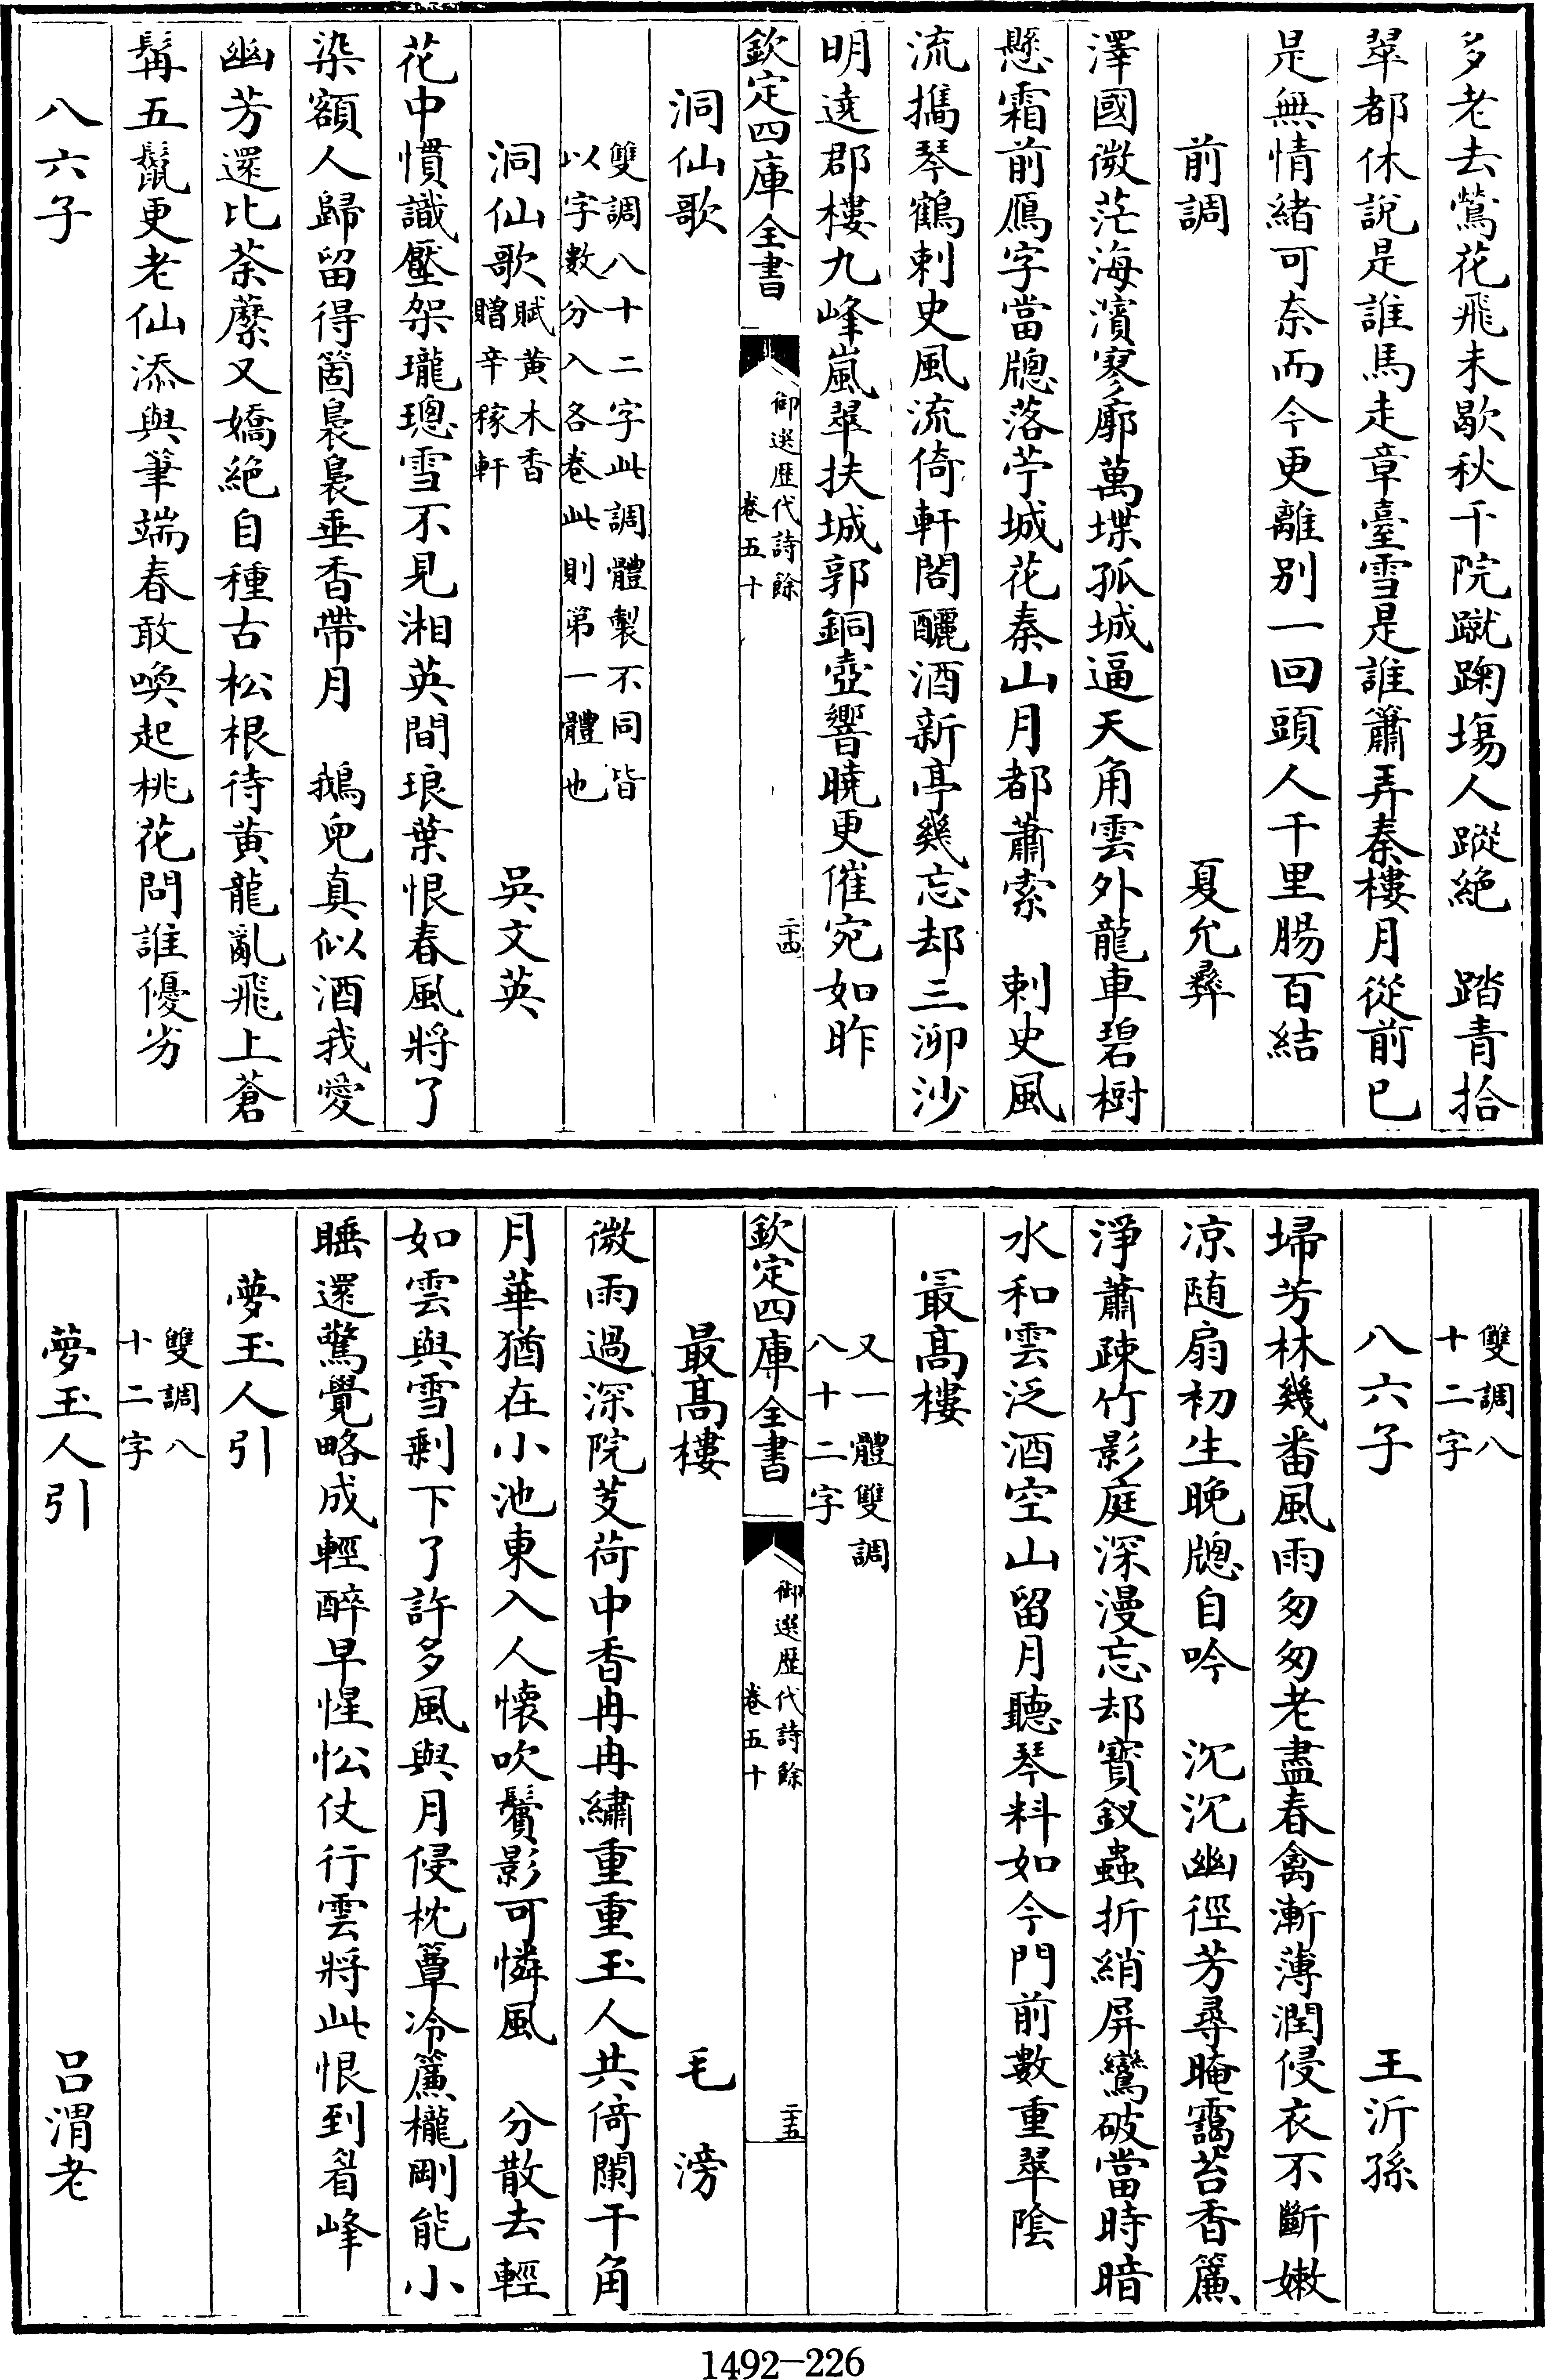 多老去鶯花飛未歇秋千院蹴踘塲人蹤絶　踏青拾
翠都休説是誰馬走章臺雪是誰簫弄秦樓月從前已
是無情緒可奈而今更離别一回頭人千里腸百結
前調　夏允彝
澤國微茫海濱寥廓萬堞孤城逼天角雲外龍車碧樹
懸霜前鴈字當牕落苧城花秦山月都蕭索　刺史風
流攜琴鶴刺史風流倚軒閣釃酒新亭幾忘却三泖沙
明遶郡樓九峰嵐翠扶城郭銅壺響曉更催宛如昨
欽定四庫全書
御選歴代詩餘
卷五十
二十四
洞仙歌
雙調八十二字此調體製不同皆
以字數分入各卷此則第一體也
洞仙歌賦黄木香
贈辛稼軒
吳文英
花中慣識壓架瓏璁雪不見湘英間琅葉恨春風將了
染額人歸留得箇裊裊垂香帶月　鵝兒真似酒我愛
幽芳還比荼䕷又嬌絶自種古松根待黄龍亂飛上蒼
髯五鬛更老仙添與筆端春敢喚起桃花問誰優劣
八六子
雙調八
十二字
八六子　王沂孫
埽芳林幾番風雨匆匆老盡春禽漸薄潤侵衣不斷嫩
凉随扇初生晚牕自吟　沉沉幽徑芳尋晻靄苔香簾
淨蕭疎竹影庭深漫忘却寳釵蟲折綃屏鸞破當時暗
水和雲泛酒空山留月聽琴料如今門前數重翠隂
最髙樓
又一體雙調
八十二字
欽定四庫全書
御選歴代詩餘
卷五十
二十五
最髙樓　毛滂
微雨過深院芰荷中香冉冉繡重重玉人共倚闌干角
月華猶在小池東入人懐吹鬢影可憐風　分散去輕
如雲與雪剩下了許多風與月侵枕簟冷簾櫳剛能小
睡還驚覺略成輕醉早惺忪仗行雲將此恨到眉峰
夢玉人引
雙調八
十二字
夢玉人引　吕渭老
1492—226